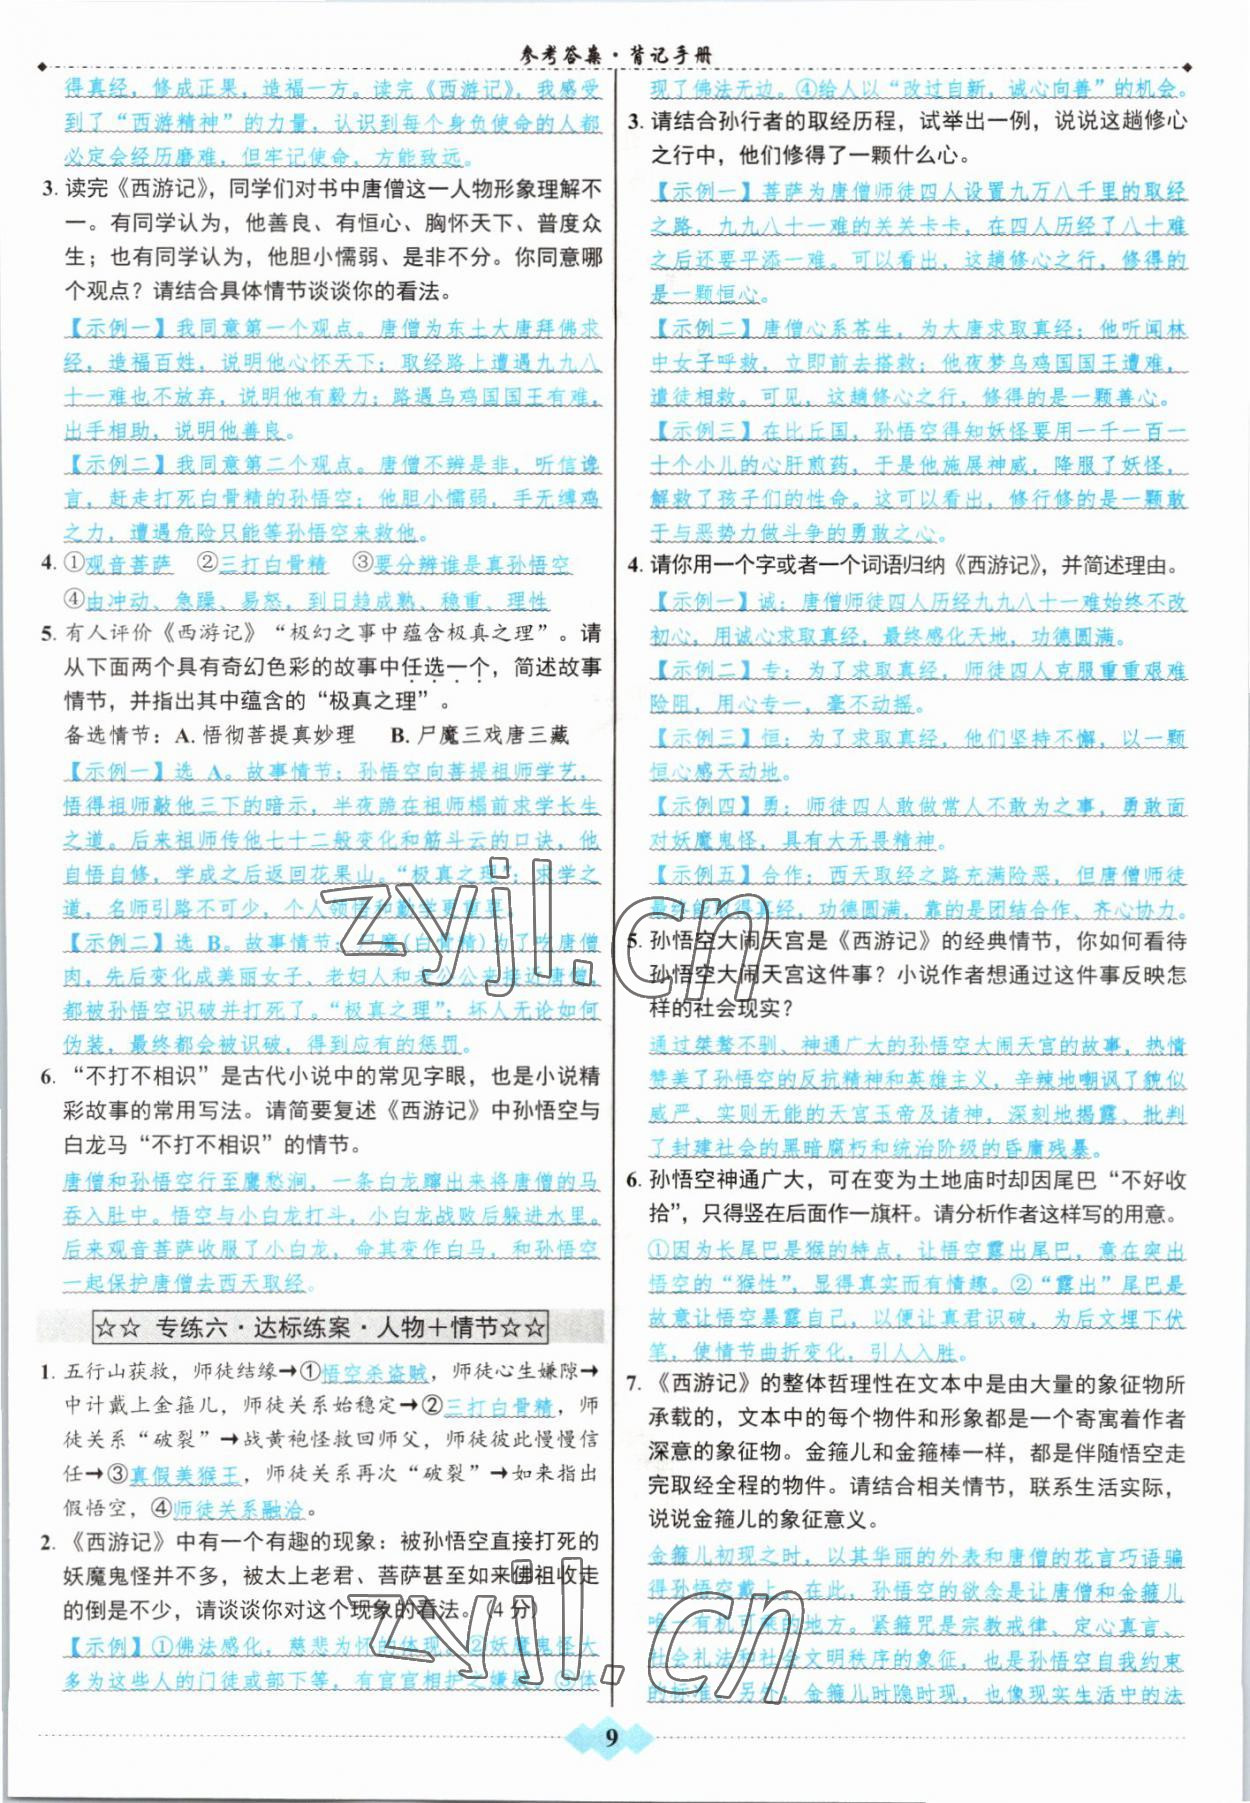 参考答案·背记手册
得真经，修成正果，造福一方。读完《西游记》，我感受
到了“西游精神”的力量，认识到每个身负使命的人都
必定会经历磨难，但牢记使命，方能致远。
3. 读完《西游记》，同学们对书中唐僧这一人物形象理解不
一。有同学认为，他善良、有恒心、胸怀天下、普度众
生；也有同学认为，他胆小懦弱、是非不分。你同意哪
个观点？请结合具体情节谈谈你的看法。
【示例一】我同意第一个观点。唐僧为东土大唐拜佛求
经，造福百姓，说明他心怀天下；取经路上遭遇九九八
十一难也不放弃，说明他有毅力；路遇乌鸡国国王有难，
出手相助，说明他善良。
【示例二】我同意第二个观点。唐僧不辨是非，听信谗
言，赶走打死白骨精的孙悟空；他胆小懦弱，手无缚鸡
之力，遭遇危险只能等孙悟空来救他。
4. ①观音菩萨 ②三打白骨精 ③要分辨谁是真孙悟空
④由冲动、急躁、易怒，到日趋成熟、稳重、理性
5. 有人评价《西游记》“极幻之事中蕴含极真之理”。请
从下面两个具有奇幻色彩的故事中任选一个，简述故事
情节，并指出其中蕴含的“极真之理”。
备选情节：A. 悟彻菩提真妙理 B. 尸魔三戏唐三藏
【示例一】选 A。故事情节：孙悟空向菩提祖师学艺，
悟得祖师敲他三下的暗示，半夜跪在祖师榻前求学长生
之道。后来祖师传他七十二般变化和筋斗云的口诀，他
自悟自修，学成之后返回花果山。“极真之理”：求学之
道，名师引路不可少，个人领悟和勤学更重要。
【示例二】选 B。故事情节：尸魔(白骨精)为了吃唐僧
肉，先后变化成美丽女子、老妇人和老公公来接近唐僧，
都被孙悟空识破并打死了。“极真之理”：坏人无论如何
伪装，最终都会被识破，得到应有的惩罚。
6. “不打不相识”是古代小说中的常见字眼，也是小说精
彩故事的常用写法。请简要复述《西游记》中孙悟空与
白龙马“不打不相识”的情节。
唐僧和孙悟空行至鹰愁涧，一条白龙蹿出来将唐僧的马
吞入肚中。悟空与小白龙打斗，小白龙战败后躲进水里。
后来观音菩萨收服了小白龙，命其变作白马，和孙悟空
一起保护唐僧去西天取经。
☆☆ 专练六·达标练案·人物＋情节☆☆
1. 五行山获救，师徒结缘→①悟空杀盗贼，师徒心生嫌隙→
中计戴上金箍儿，师徒关系始稳定→②三打白骨精，师
徒关系“破裂”→战黄袍怪救回师父，师徒彼此慢慢信
任→③真假美猴王，师徒关系再次“破裂”→如来指出
假悟空，④师徒关系融洽。
2. 《西游记》中有一个有趣的现象：被孙悟空直接打死的
妖魔鬼怪并不多，被太上老君、菩萨甚至如来佛祖收走
的倒是不少，请谈谈你对这个现象的看法。(4 分)
【示例】①佛法感化，慈悲为怀的体现。②妖魔鬼怪大
多为这些人的门徒或部下等，有官官相护之嫌疑。③体
现了佛法无边。④给人以“改过自新，诚心向善”的机会。
3. 请结合孙行者的取经历程，试举出一例，说说这趟修心
之行中，他们修得了一颗什么心。
【示例一】菩萨为唐僧师徒四人设置九万八千里的取经
之路，九九八十一难的关关卡卡，在四人历经了八十难
之后还要平添一难。可以看出，这趟修心之行，修得的
是一颗恒心。
【示例二】唐僧心系苍生，为大唐求取真经；他听闻林
中女子呼救，立即前去搭救；他夜梦乌鸡国国王遭难，
遣徒相救。可见，这趟修心之行，修得的是一颗善心。
【示例三】在比丘国，孙悟空得知妖怪要用一千一百一
十个小儿的心肝煎药，于是他施展神威，降服了妖怪，
解救了孩子们的性命。这可以看出，修行修的是一颗敢
于与恶势力做斗争的勇敢之心。
4. 请你用一个字或者一个词语归纳《西游记》，并简述理由。
【示例一】诚：唐僧师徒四人历经九九八十一难始终不改
初心，用诚心求取真经，最终感化天地，功德圆满。
【示例二】专：为了求取真经，师徒四人克服重重艰难
险阻，用心专一，毫不动摇。
【示例三】恒：为了求取真经，他们坚持不懈，以一颗
恒心感天动地。
【示例四】勇：师徒四人敢做常人不敢为之事，勇敢面
对妖魔鬼怪，具有大无畏精神。
【示例五】合作：西天取经之路充满险恶，但唐僧师徒
最终能取得真经，功德圆满，靠的是团结合作、齐心协力。
5. 孙悟空大闹天宫是《西游记》的经典情节，你如何看待
孙悟空大闹天宫这件事？小说作者想通过这件事反映怎
样的社会现实？
通过桀骜不驯、神通广大的孙悟空大闹天宫的故事，热情
赞美了孙悟空的反抗精神和英雄主义，辛辣地嘲讽了貌似
威严、实则无能的天宫玉帝及诸神，深刻地揭露、批判
了封建社会的黑暗腐朽和统治阶级的昏庸残暴。
6. 孙悟空神通广大，可在变为土地庙时却因尾巴“不好收
拾”，只得竖在后面作一旗杆。请分析作者这样写的用意。
①因为长尾巴是猴的特点，让悟空露出尾巴，意在突出
悟空的“猴性”，显得真实而有情趣。②“露出”尾巴是
故意让悟空暴露自己，以便让真君识破，为后文埋下伏
笔，使情节曲折变化，引人入胜。
7. 《西游记》的整体哲理性在文本中是由大量的象征物所
承载的，文本中的每个物件和形象都是一个寄寓着作者
深意的象征物。金箍儿和金箍棒一样，都是伴随悟空走
完取经全程的物件。请结合相关情节，联系生活实际，
说说金箍儿的象征意义。
金箍儿初现之时，以其华丽的外表和唐僧的花言巧语骗
得孙悟空戴上。在此，孙悟空的欲念是让唐僧和金箍儿
唯一有机可乘的地方。紧箍咒是宗教戒律、定心真言、
社会礼法和社会文明秩序的象征，也是孙悟空自我约束
的标准。另外，金箍儿时隐时现，也像现实生活中的法
9
zyjl.cn
zyjl.cn